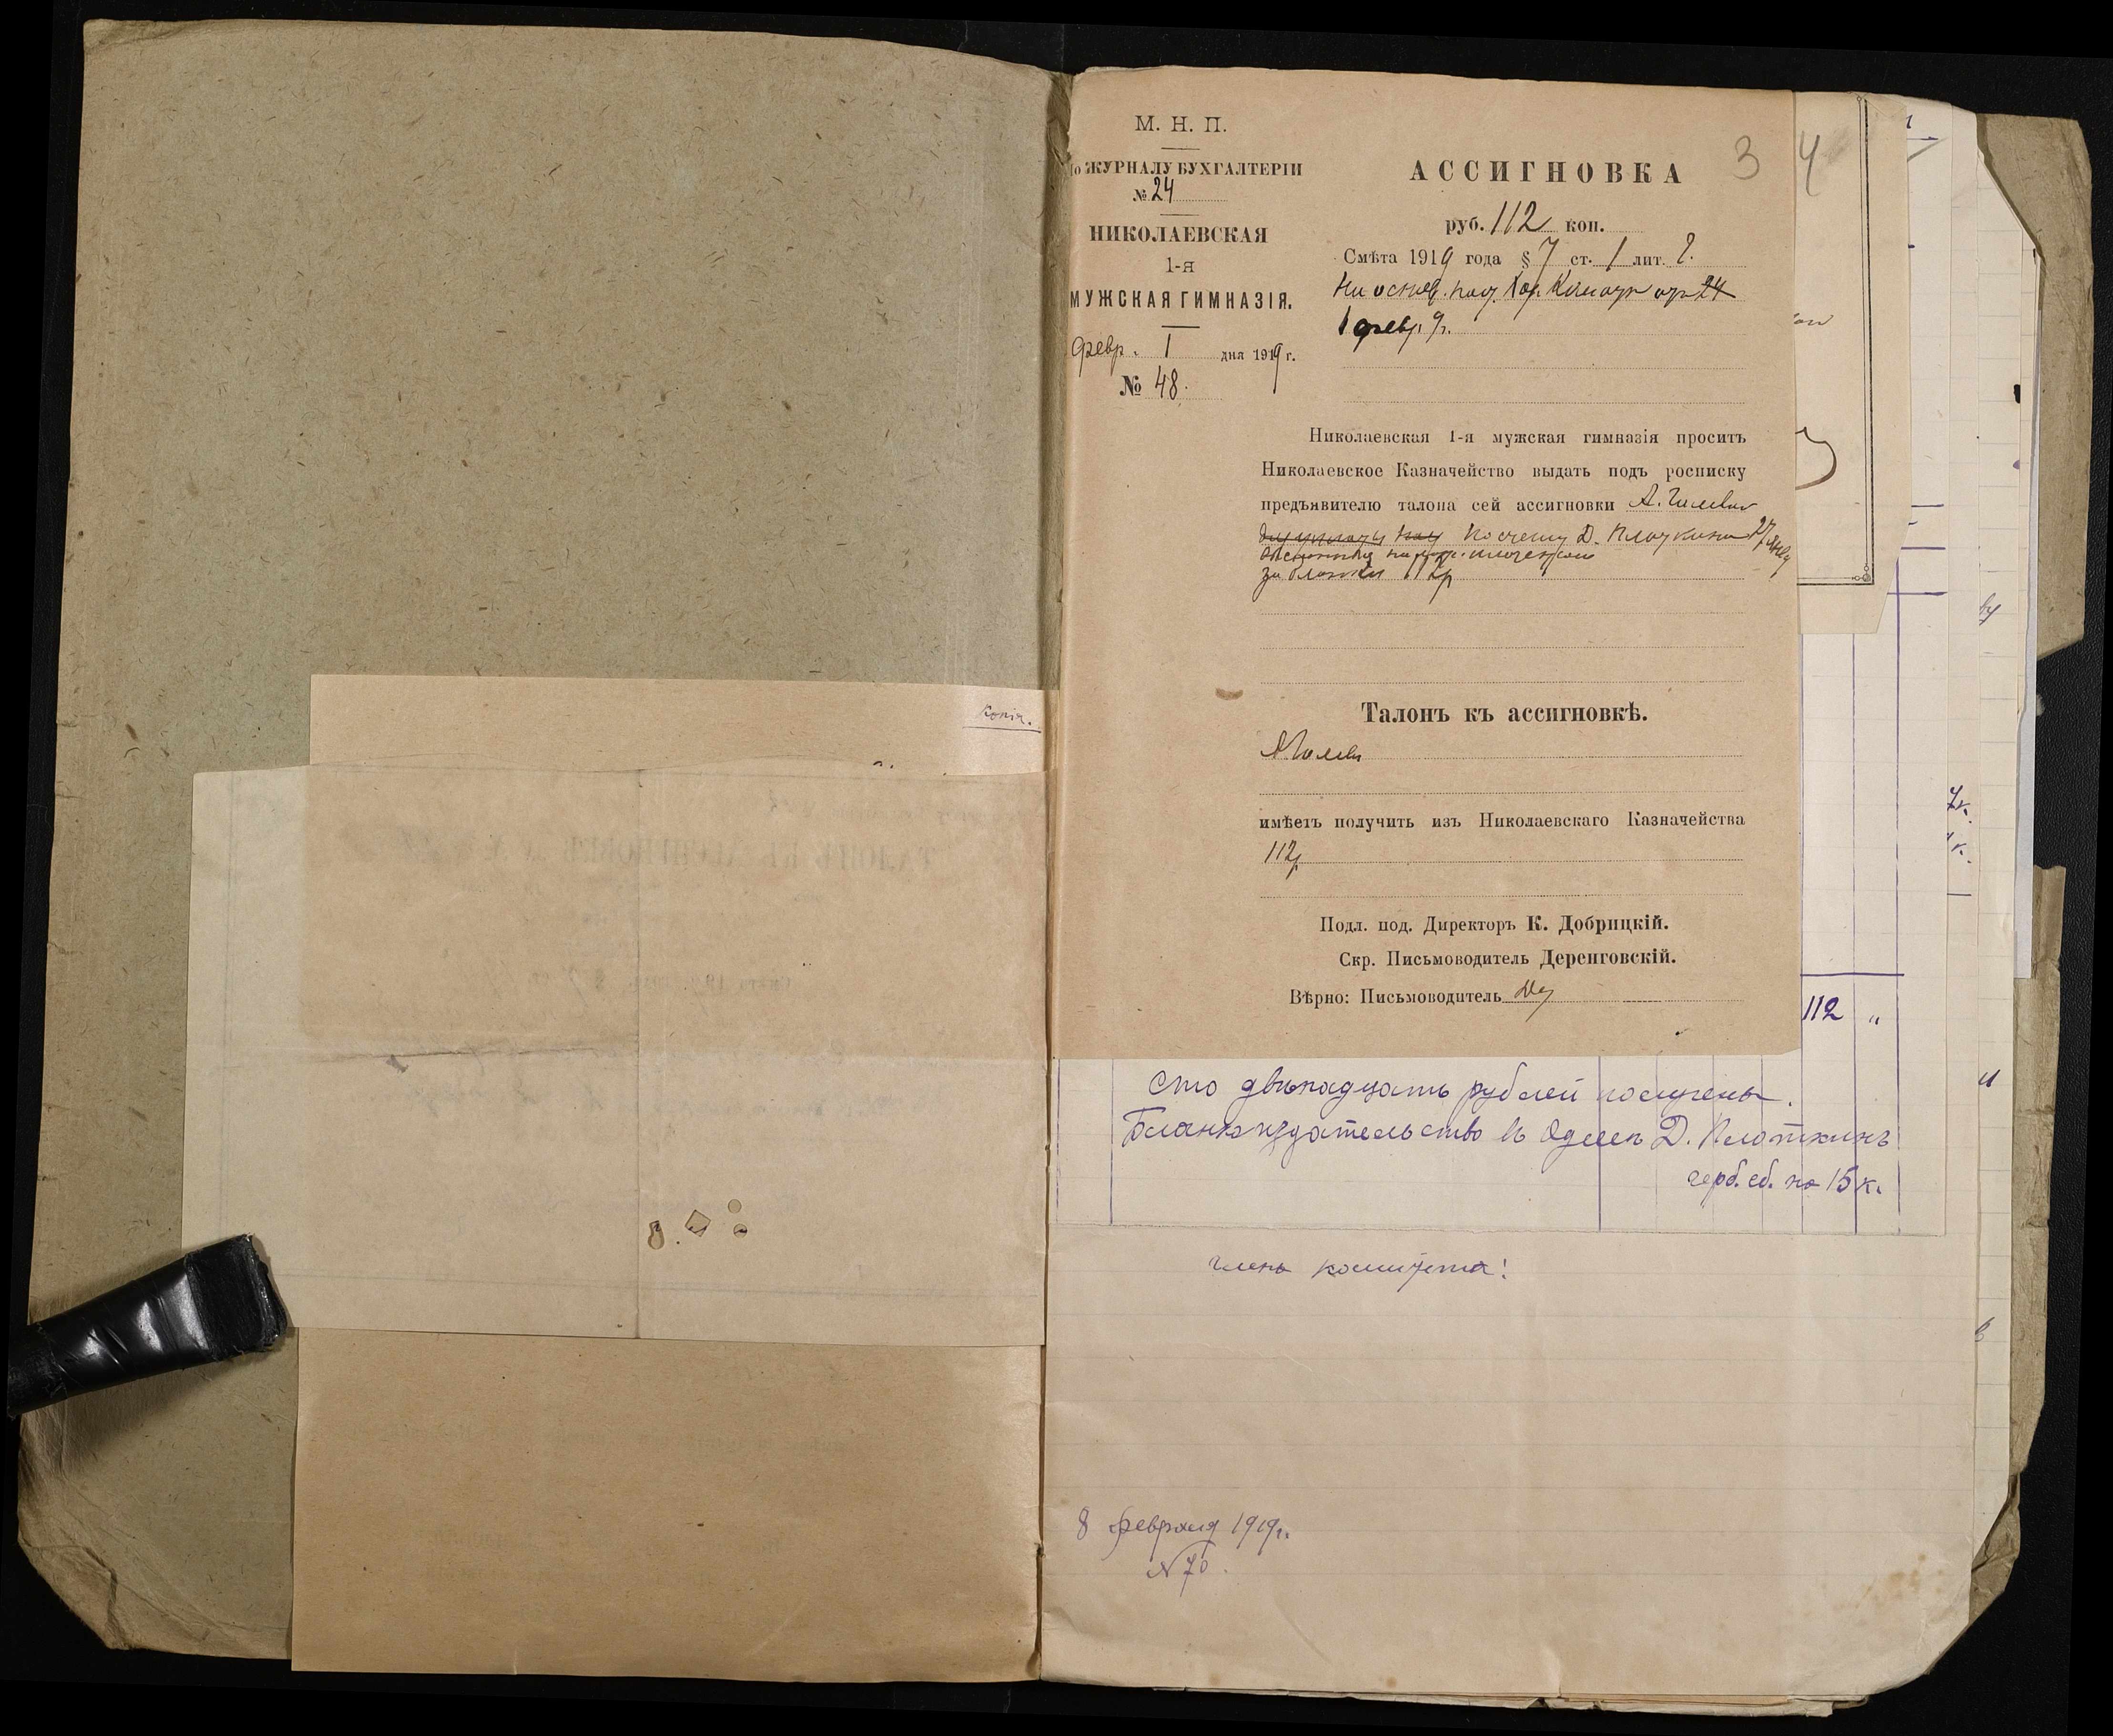 Копія.
М. Н. П.
ЖУРНАЛУ БУХГАЛТЕРІИ
№ 24
НИКОЛАЕВСКАЯ
1-я
МУЖСКАЯ ГИМНАЗІЯ.
февр. 1 дня 1919 г.
№ 48.
3 4
АССИГНОВКА
руб. 112 коп.
Смѣта 1919 года § 7 ст. 1 лит.
1 февр.
Николаевская 1-я мужская гимназія проситъ
Николаевское Казначейство выдать подъ росписку
предъявителю талона сей ассигновки А.
По счету Д. Плоткина 27
за бланки 112 р
Талонъ къ ассигновкѣ.
имѣетъ получить изъ Николаевскаго Казначейства
112 р
Подл. под. Директоръ К. Добрицкій.
Скр. Письмоводитель Деренговскій.
Вѣрно: Письмоводитель
112 "
Сто двѣнадцать рублей получены.
Бланкоиздательство въ Одессѣ Д. Плоткинъ
герб. сб. на 15 к.
члена комитета:
8 февраля 1919 г.
№ 70.